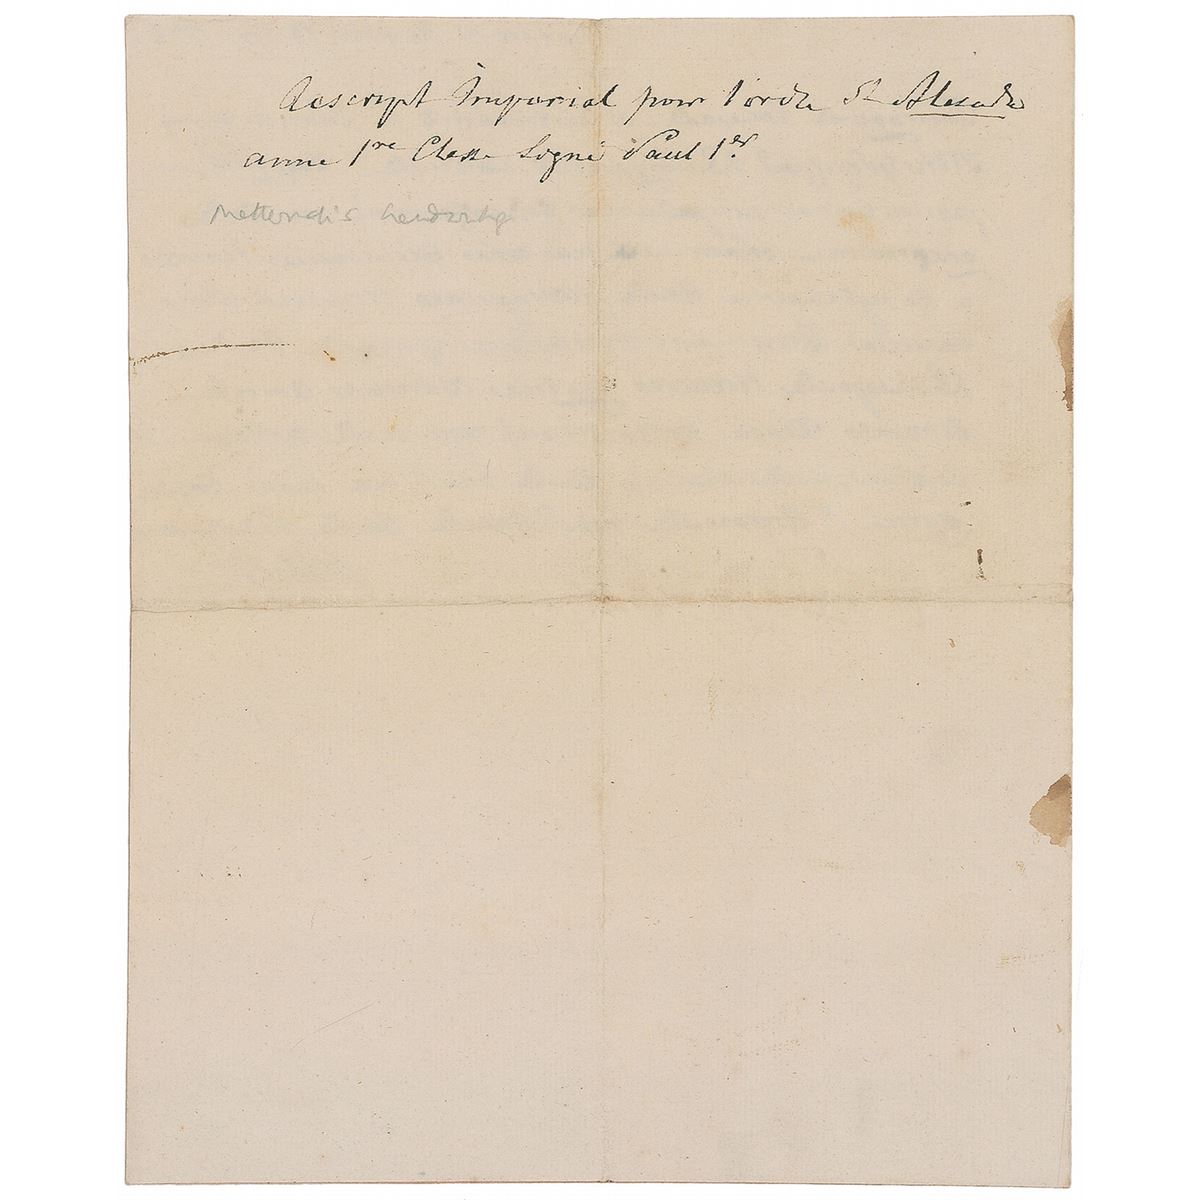 Rescript Imperial pour l'ordre St Alexandre
anne 1re Classe Signé Paul 1er
Metternich's handwriting